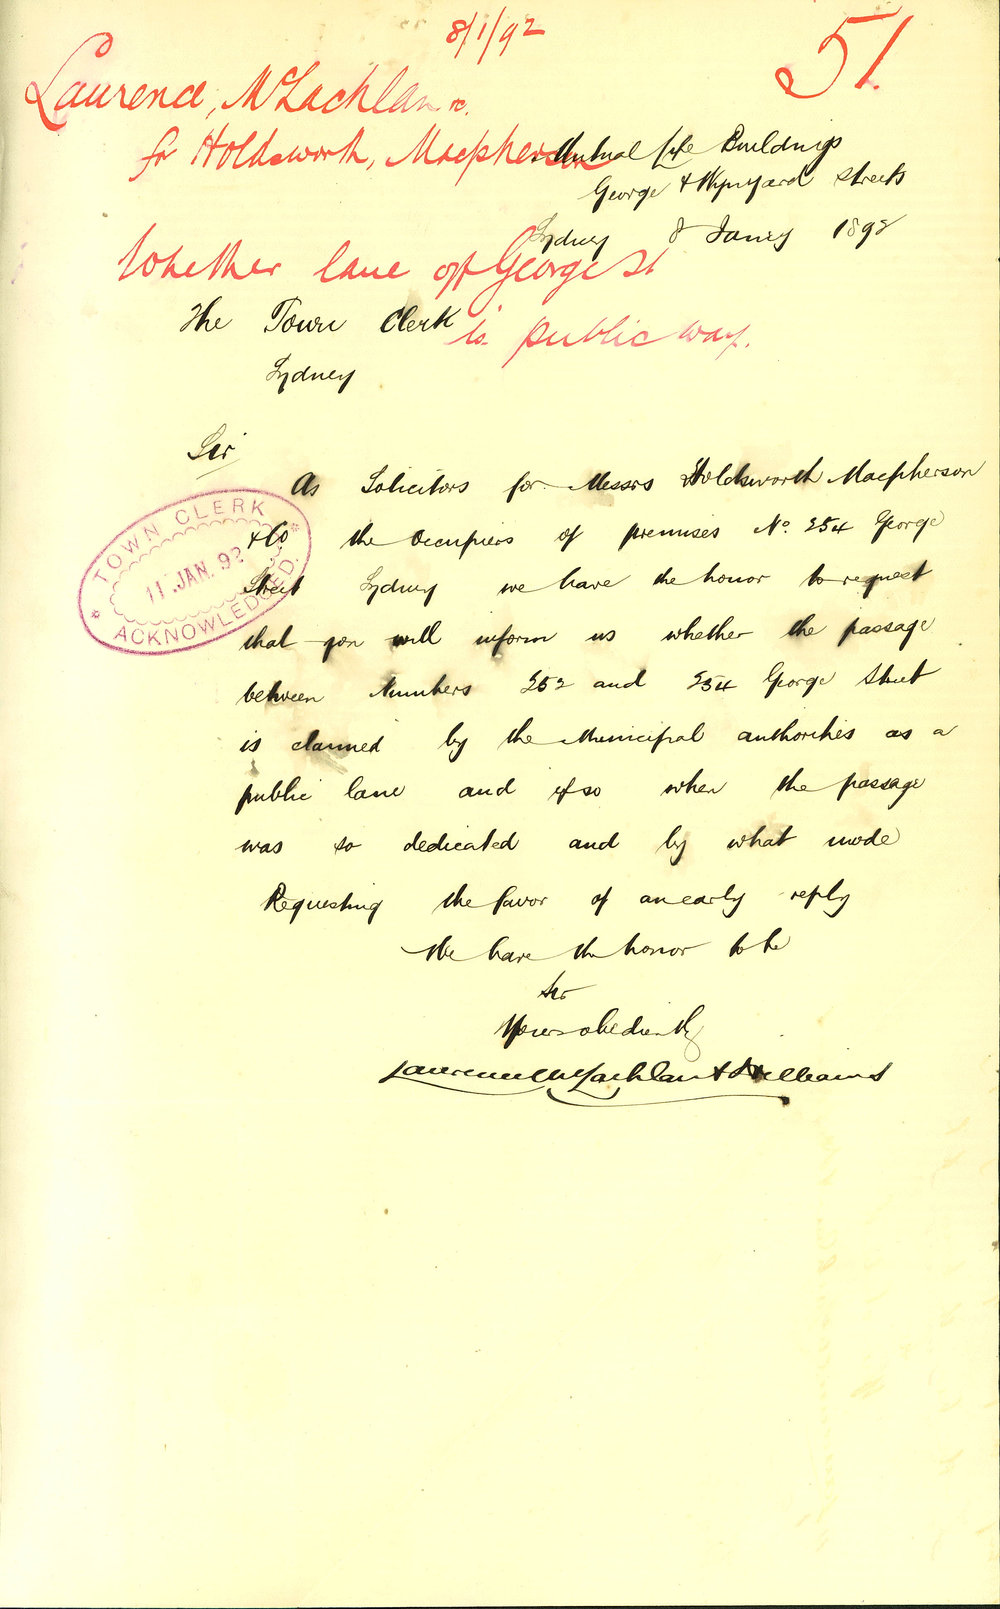 8/1/92
51.
Laurence, McLachlan &c.
for Holdsworth, Macpherson
Mutual Life Buildings
George & Wynyard Streets
Sydney 8 Jany 1892
Whether lane off George St
is public way.
The Town Clerk
Sydney
Sir
As Solicitors for Messrs Holdsworth Macpherson
& Co the Occupiers of premises No. 254 George
Street Sydney we have the honor to request
that you will inform us whether the passage
between Numbers 252 and 254 George Street
is claimed by the Municipal authorities as a
public lane and if so when the passage
was so dedicated and by what mode
Requesting the favor of an early reply
We have the honor to be
Sir
Yours obediently
Laurence McLachlan & Williams
TOWN CLERK
11 JAN. 92
ACKNOWLEDGED.